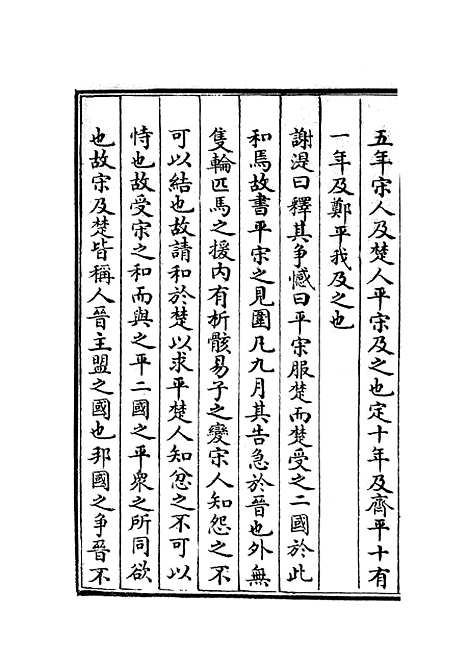 五年宋人及楚人平宋及之也定十年及齊平十有
一年及鄭平我及之也
謝湜曰釋其争憾曰平宋服楚而楚受之二國於此
和焉故書平宋之見圍凡九月其告急於晉也外無
隻輪匹馬之援内有析骸易子之變宋人知怨之不
可以結也故請和於楚以求平楚人知忿之不可以
恃也故受宋之和而與之平二國之平衆之所同欲
也故宋及楚皆稱人晉主盟之國也邦國之争晉不